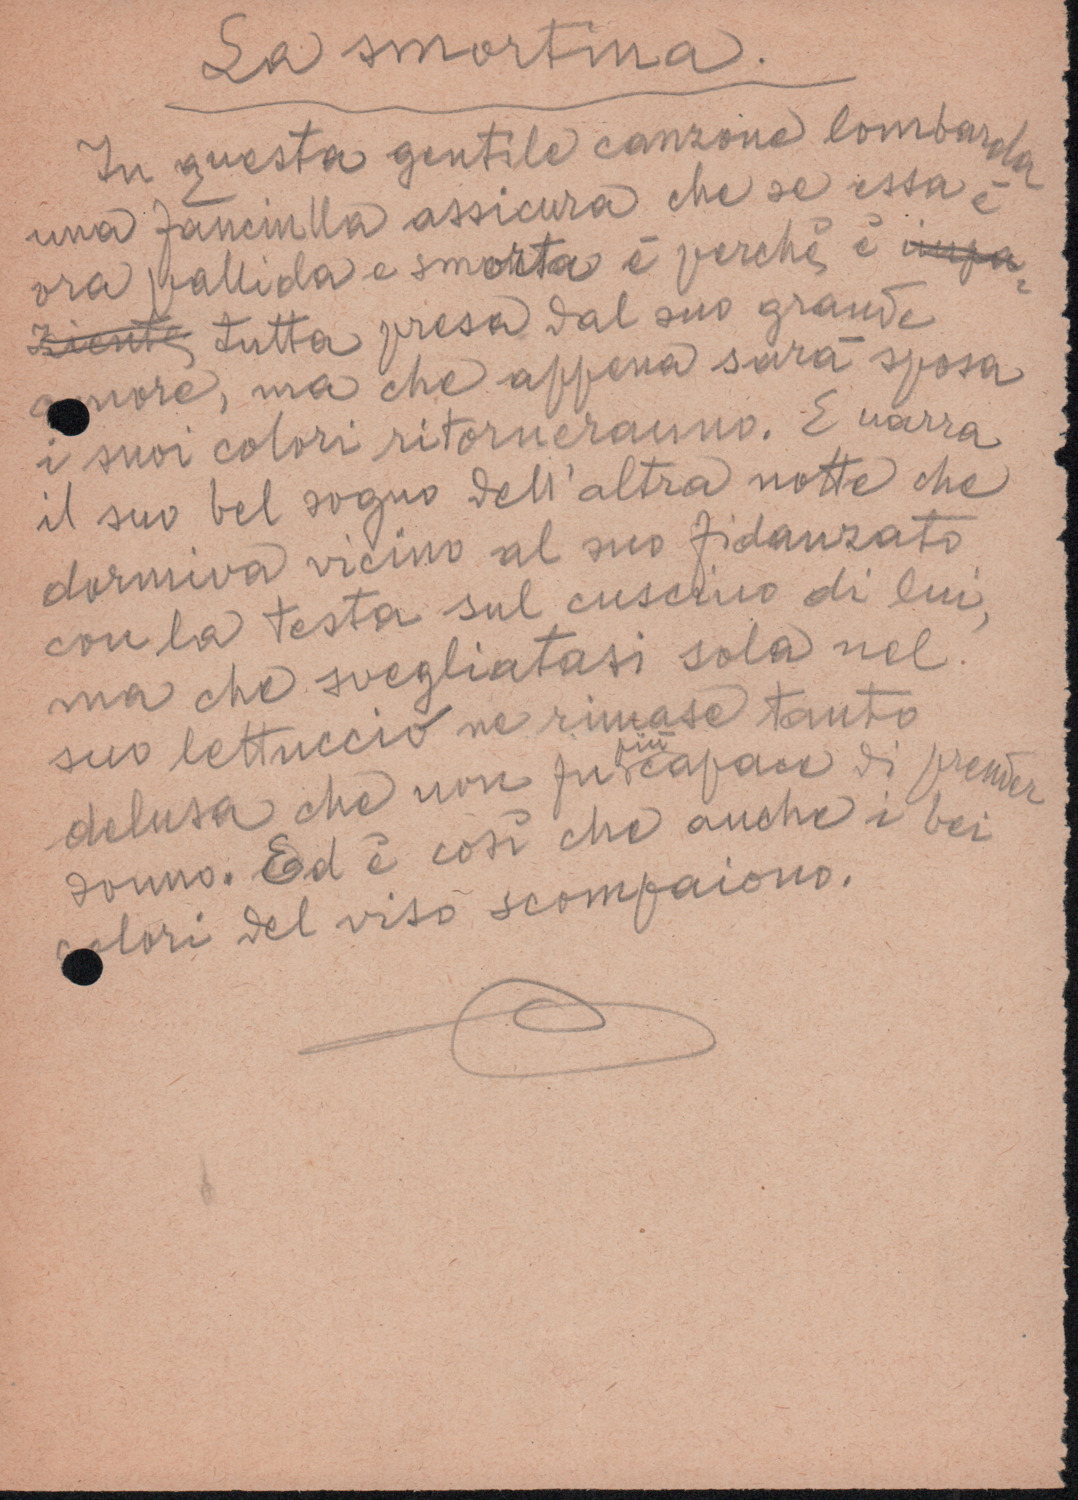 La smortina.
In questa gentile canzone lombarda
una fanciulla assicura che se essa è
ora pallida e smorta è perchè è impa-
ziente, tutta presa dal suo grande
amore, ma che appena sarà sposa
i suoi colori ritorneranno. E narra
il suo bel sogno dell'altra notte che
dormiva vicino al suo fidanzato
con la testa sul cuscino di lui,
ma che svegliatasi sola nel
suo lettuccio ne rimase tanto
delusa che non fu più capace di prender
sonno. Ed è così che anche i bei
colori del viso scompaiono.